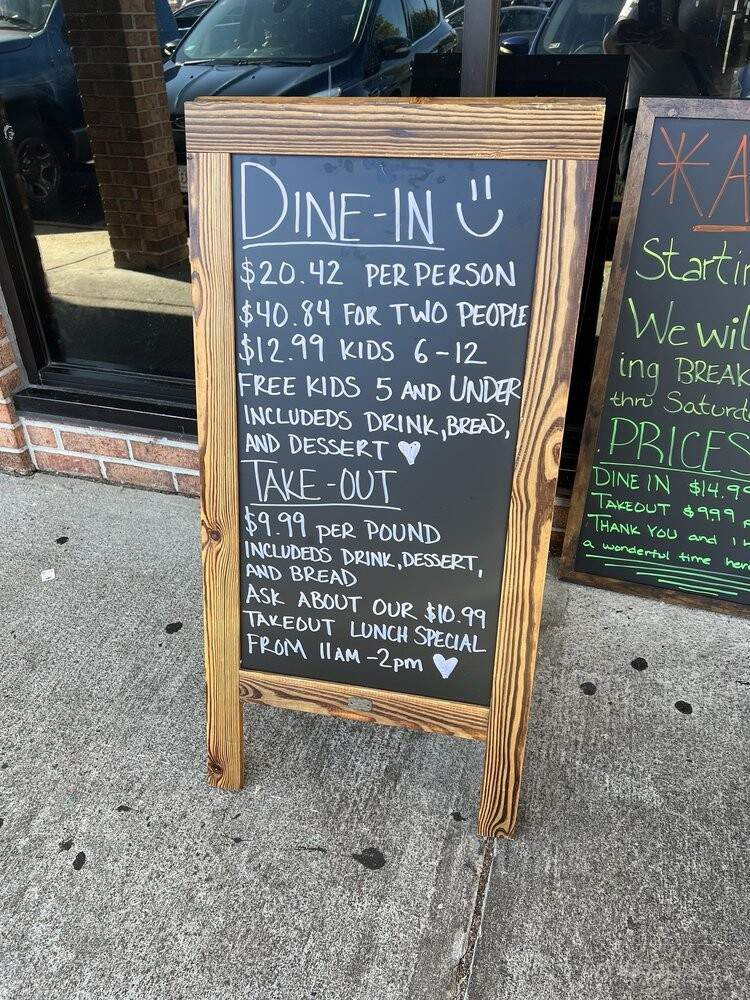 DINE-IN
$20.42 PER PERSON
$40.84 FOR TWO PEOPLE
$12.99 KIDS 6-12
FREE KIDS 5 AND UNDER
INCLUDEDS DRINK, BREAD,
AND DESSERT
TAKE-OUT
$9.99 PER POUND
INCLUDEDS DRINK, DESSERT,
AND BREAD
ASK ABOUT OUR $10.99
TAKEOUT LUNCH SPECIAL
FROM 11AM-2pm
We
ing
thru
PRICES
DINE IN $14.99
TAKEOUT $9.99
THANK YOU and
a wonderful time